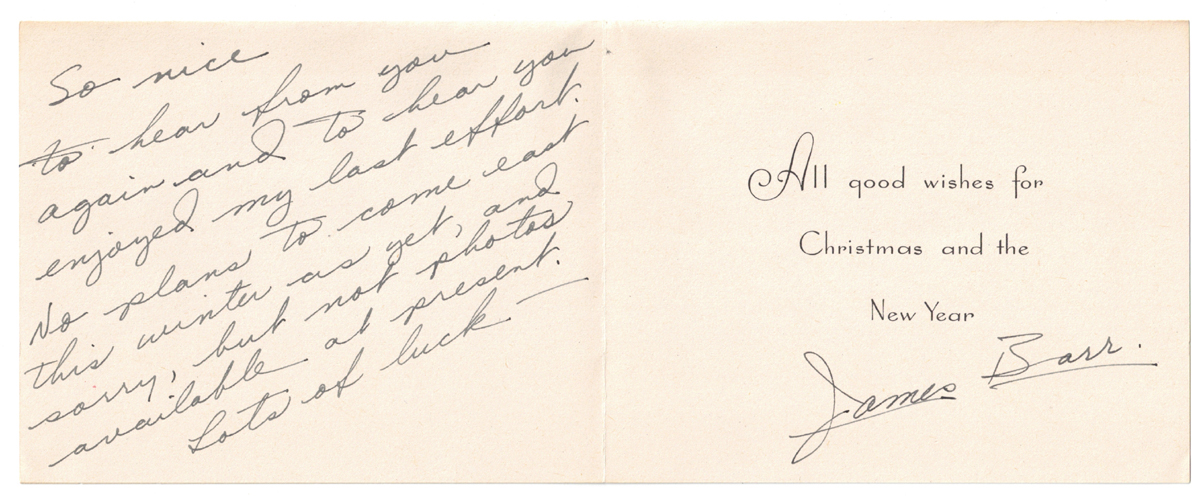 So nice
to hear from you
again and to hear you
enjoyed my last effort.
No plans to come east
this winter as yet, and
sorry, but not photos
available at present.
Lots of luck —
All good wishes for
Christmas and the
New Year
James Barr.